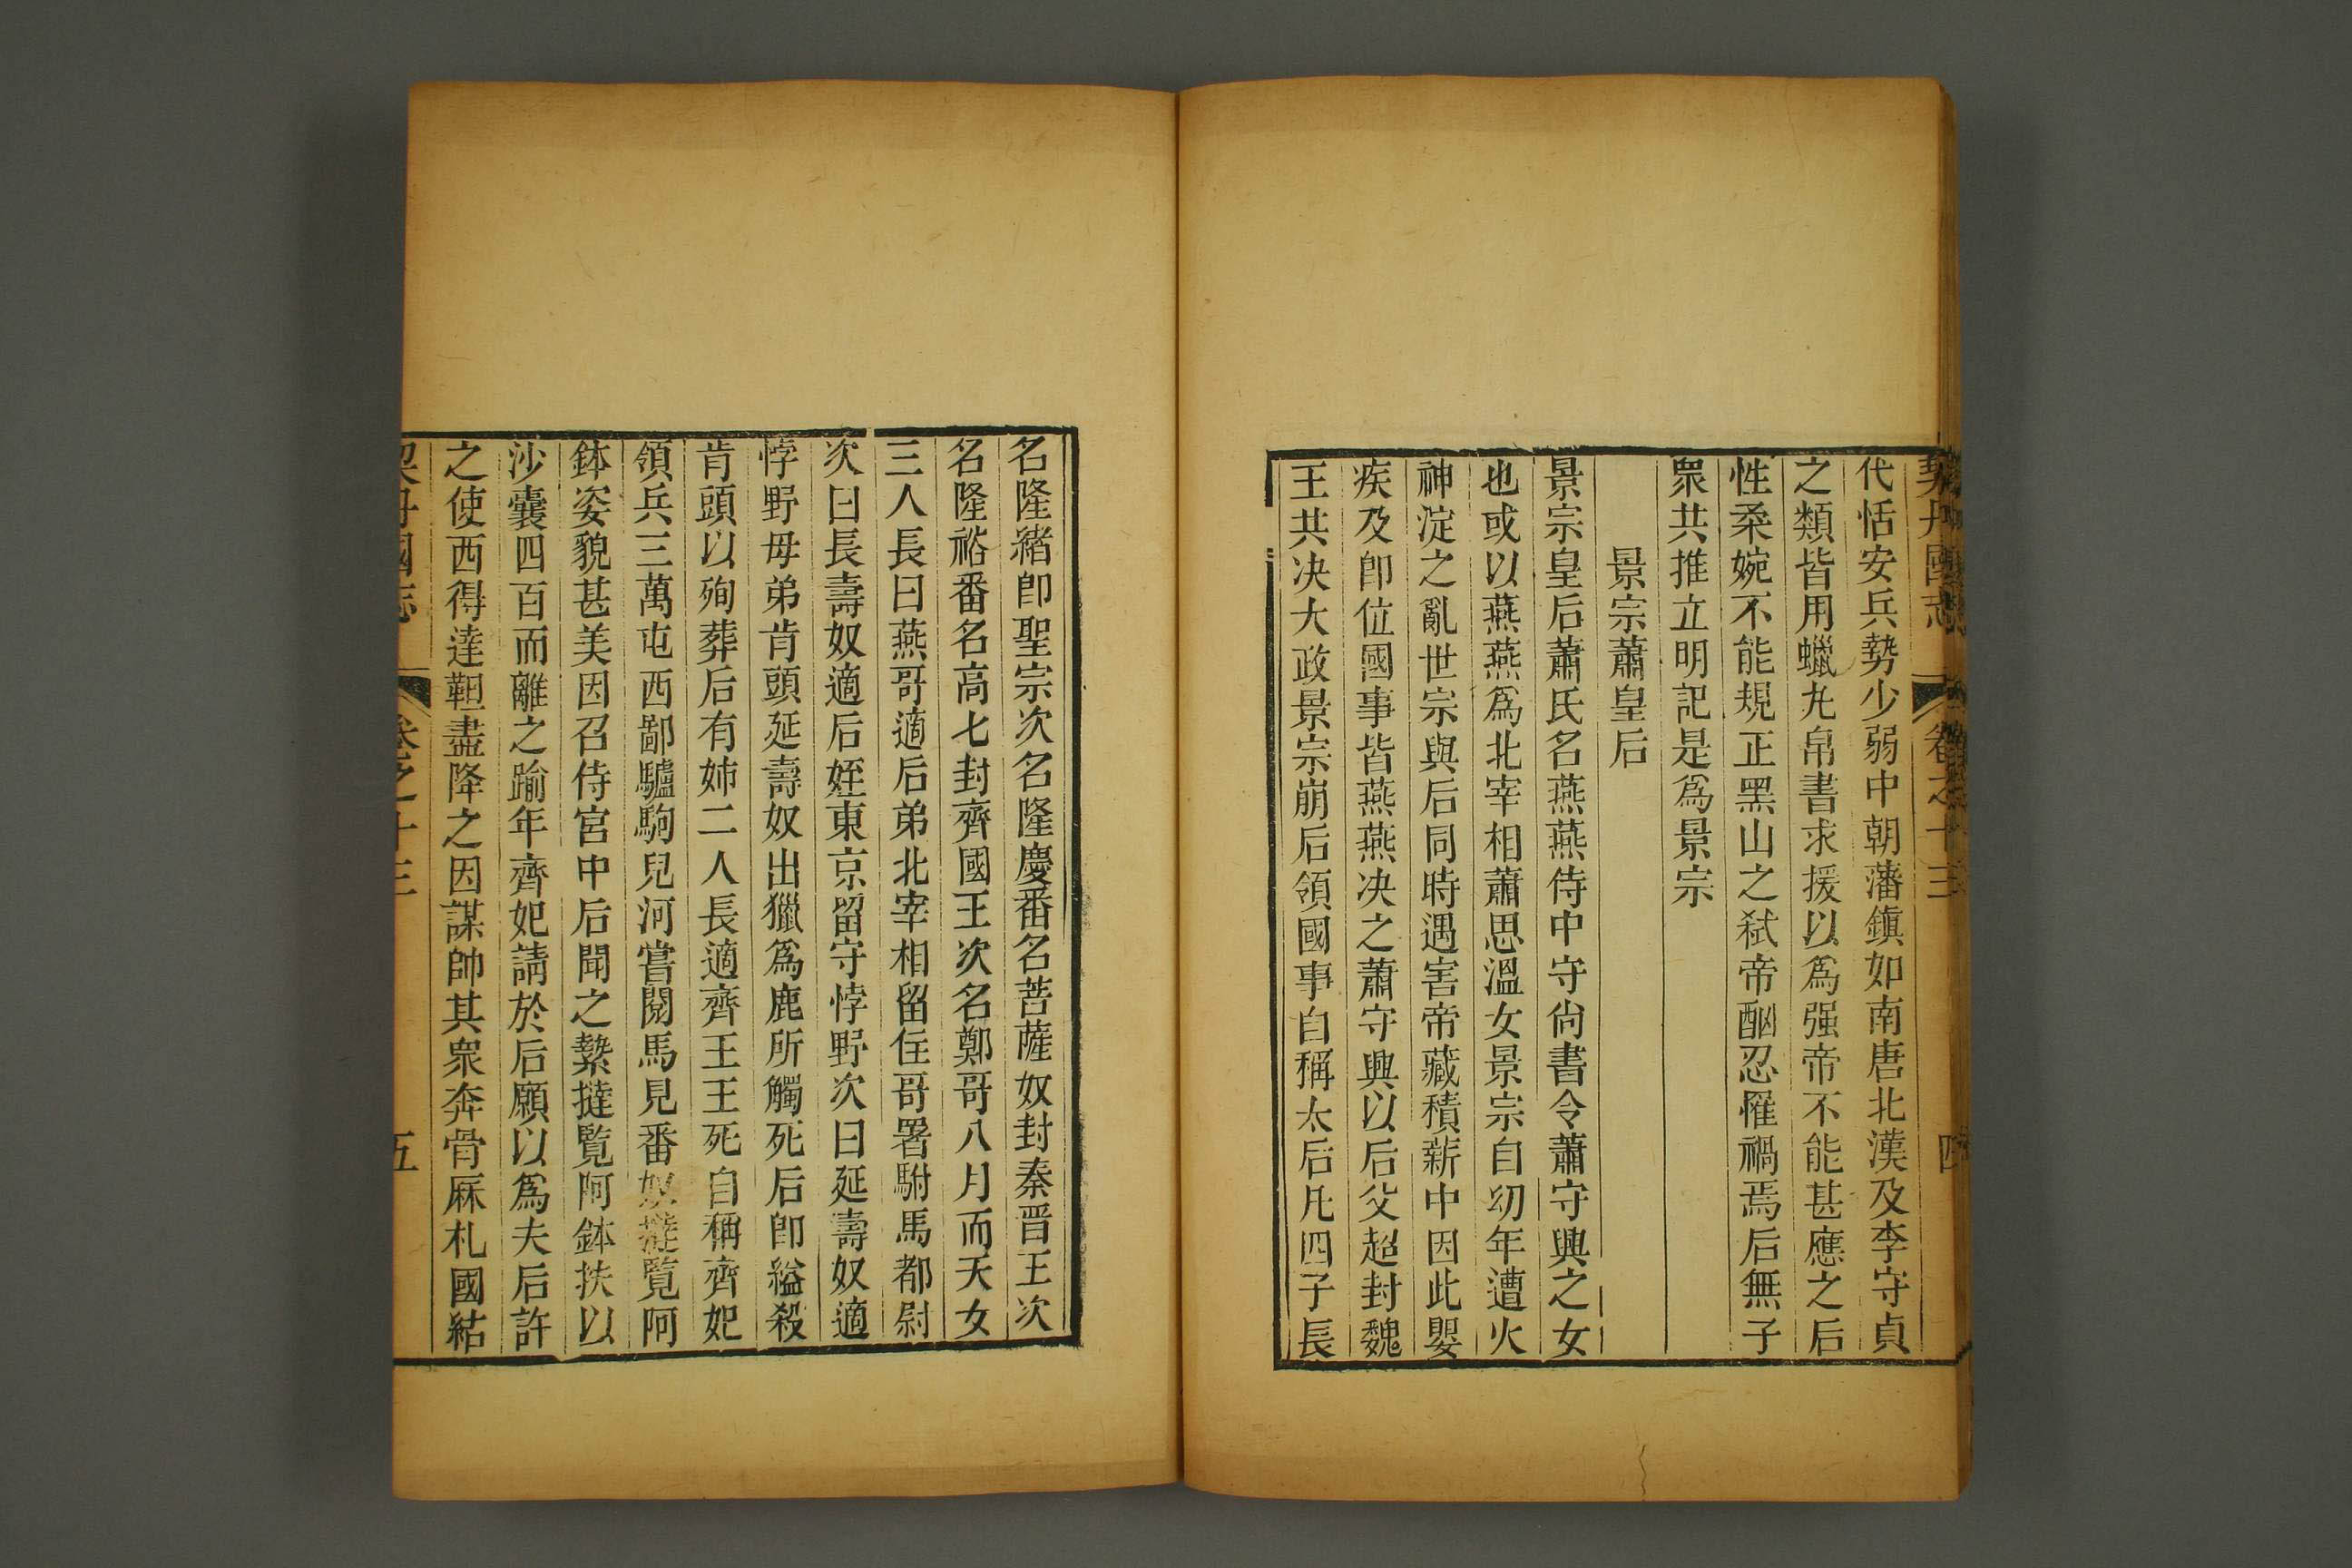 契丹國志 卷之十三 四
代恬安兵勢少弱中朝藩鎮如南唐北漢及李守貞
之類皆用蠟丸帛書求援以爲强帝不能甚應之后
性柔婉不能規正黑山之弑帝酗忍罹禍焉后無子
衆共推立明記是爲景宗
景宗蕭皇后
景宗皇后蕭氏名燕燕侍中守尙書令蕭守興之女
也或以燕燕爲北宰相蕭思溫女景宗自㓜年遭火
神淀之亂世宗與后同時遇害帝藏積薪中因此嬰
疾及卽位國事皆燕燕决之蕭守興以后父超封魏
王共决大政景宗崩后領國事自稱太后凡四子長
名隆緒卽聖宗次名隆慶番名菩薩奴封秦晋王次
名隆裕番名高七封齊國王次名鄭哥八月而夭女
三人長曰燕哥適后弟北宰相留住哥署駙馬都尉
次曰長壽奴適后姪東京留守悖野次曰延壽奴適
悖野母弟肯頭延壽奴出獵爲鹿所觸死后卽縊殺
肯頭以殉葬后有姊二人長適齊王王死自稱齊妃
領兵三萬屯西鄙驢駒兒河嘗閱馬見番奴撻覽阿
鉢姿貌甚美因召侍宮中后聞之縶撻覽阿鉢抶以
沙囊四百而離之踰年齊妃請於后願以爲夫后許
之使西得達靼盡降之因謀帥其衆奔骨厤札國結
契丹國志 卷之十三 五